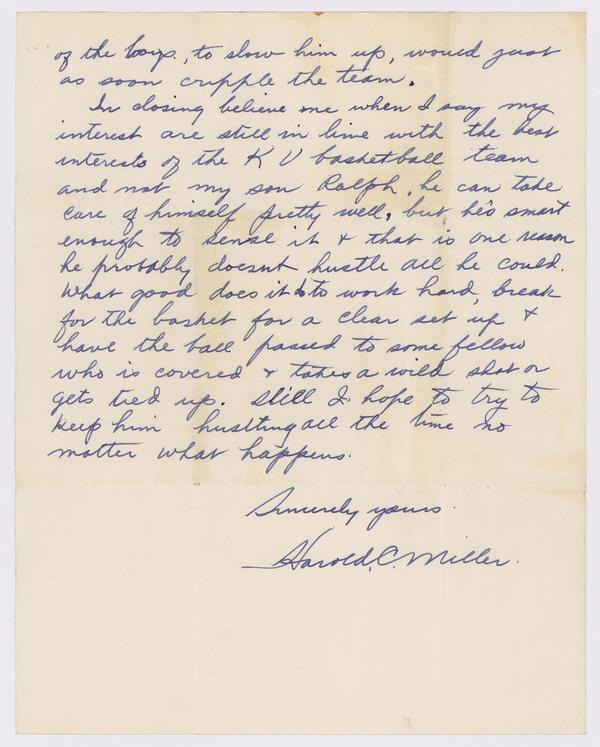 of the boys, to slow him up, would just
as soon cripple the team.
In closing believe me when I say my
interest are still in line with the best
interests of the K U basketball team
and not my son Ralph, he can take
care of himself pretty well, but he's smart
enough to sense it & that is one reason
he probably doesnt hustle all he could.
What good does it to work hard, break
for the basket for a clear set up &
have the ball passed to some fellow
who is covered & takes a wild shot or
gets tied up. Still I hope to try to
keep him hustling all the time no
matter what happens.
Sincerely yours.
Harold. C. Miller.